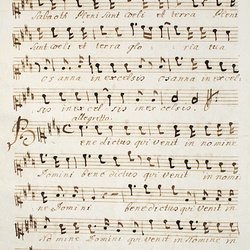 Sabaoth Pleni sunt coeli et terra Pleni
sunt coeli et terra glo - ria tua
osanna in excelsis osanna in excel-
sis in excel - sis in excelsis.
allegretto.
Benedictus qui venit in nomine
Domini benedictus qui venit in nomi-
ne Domini benedictus qui venit in
nomine Domini qui venit in nomine